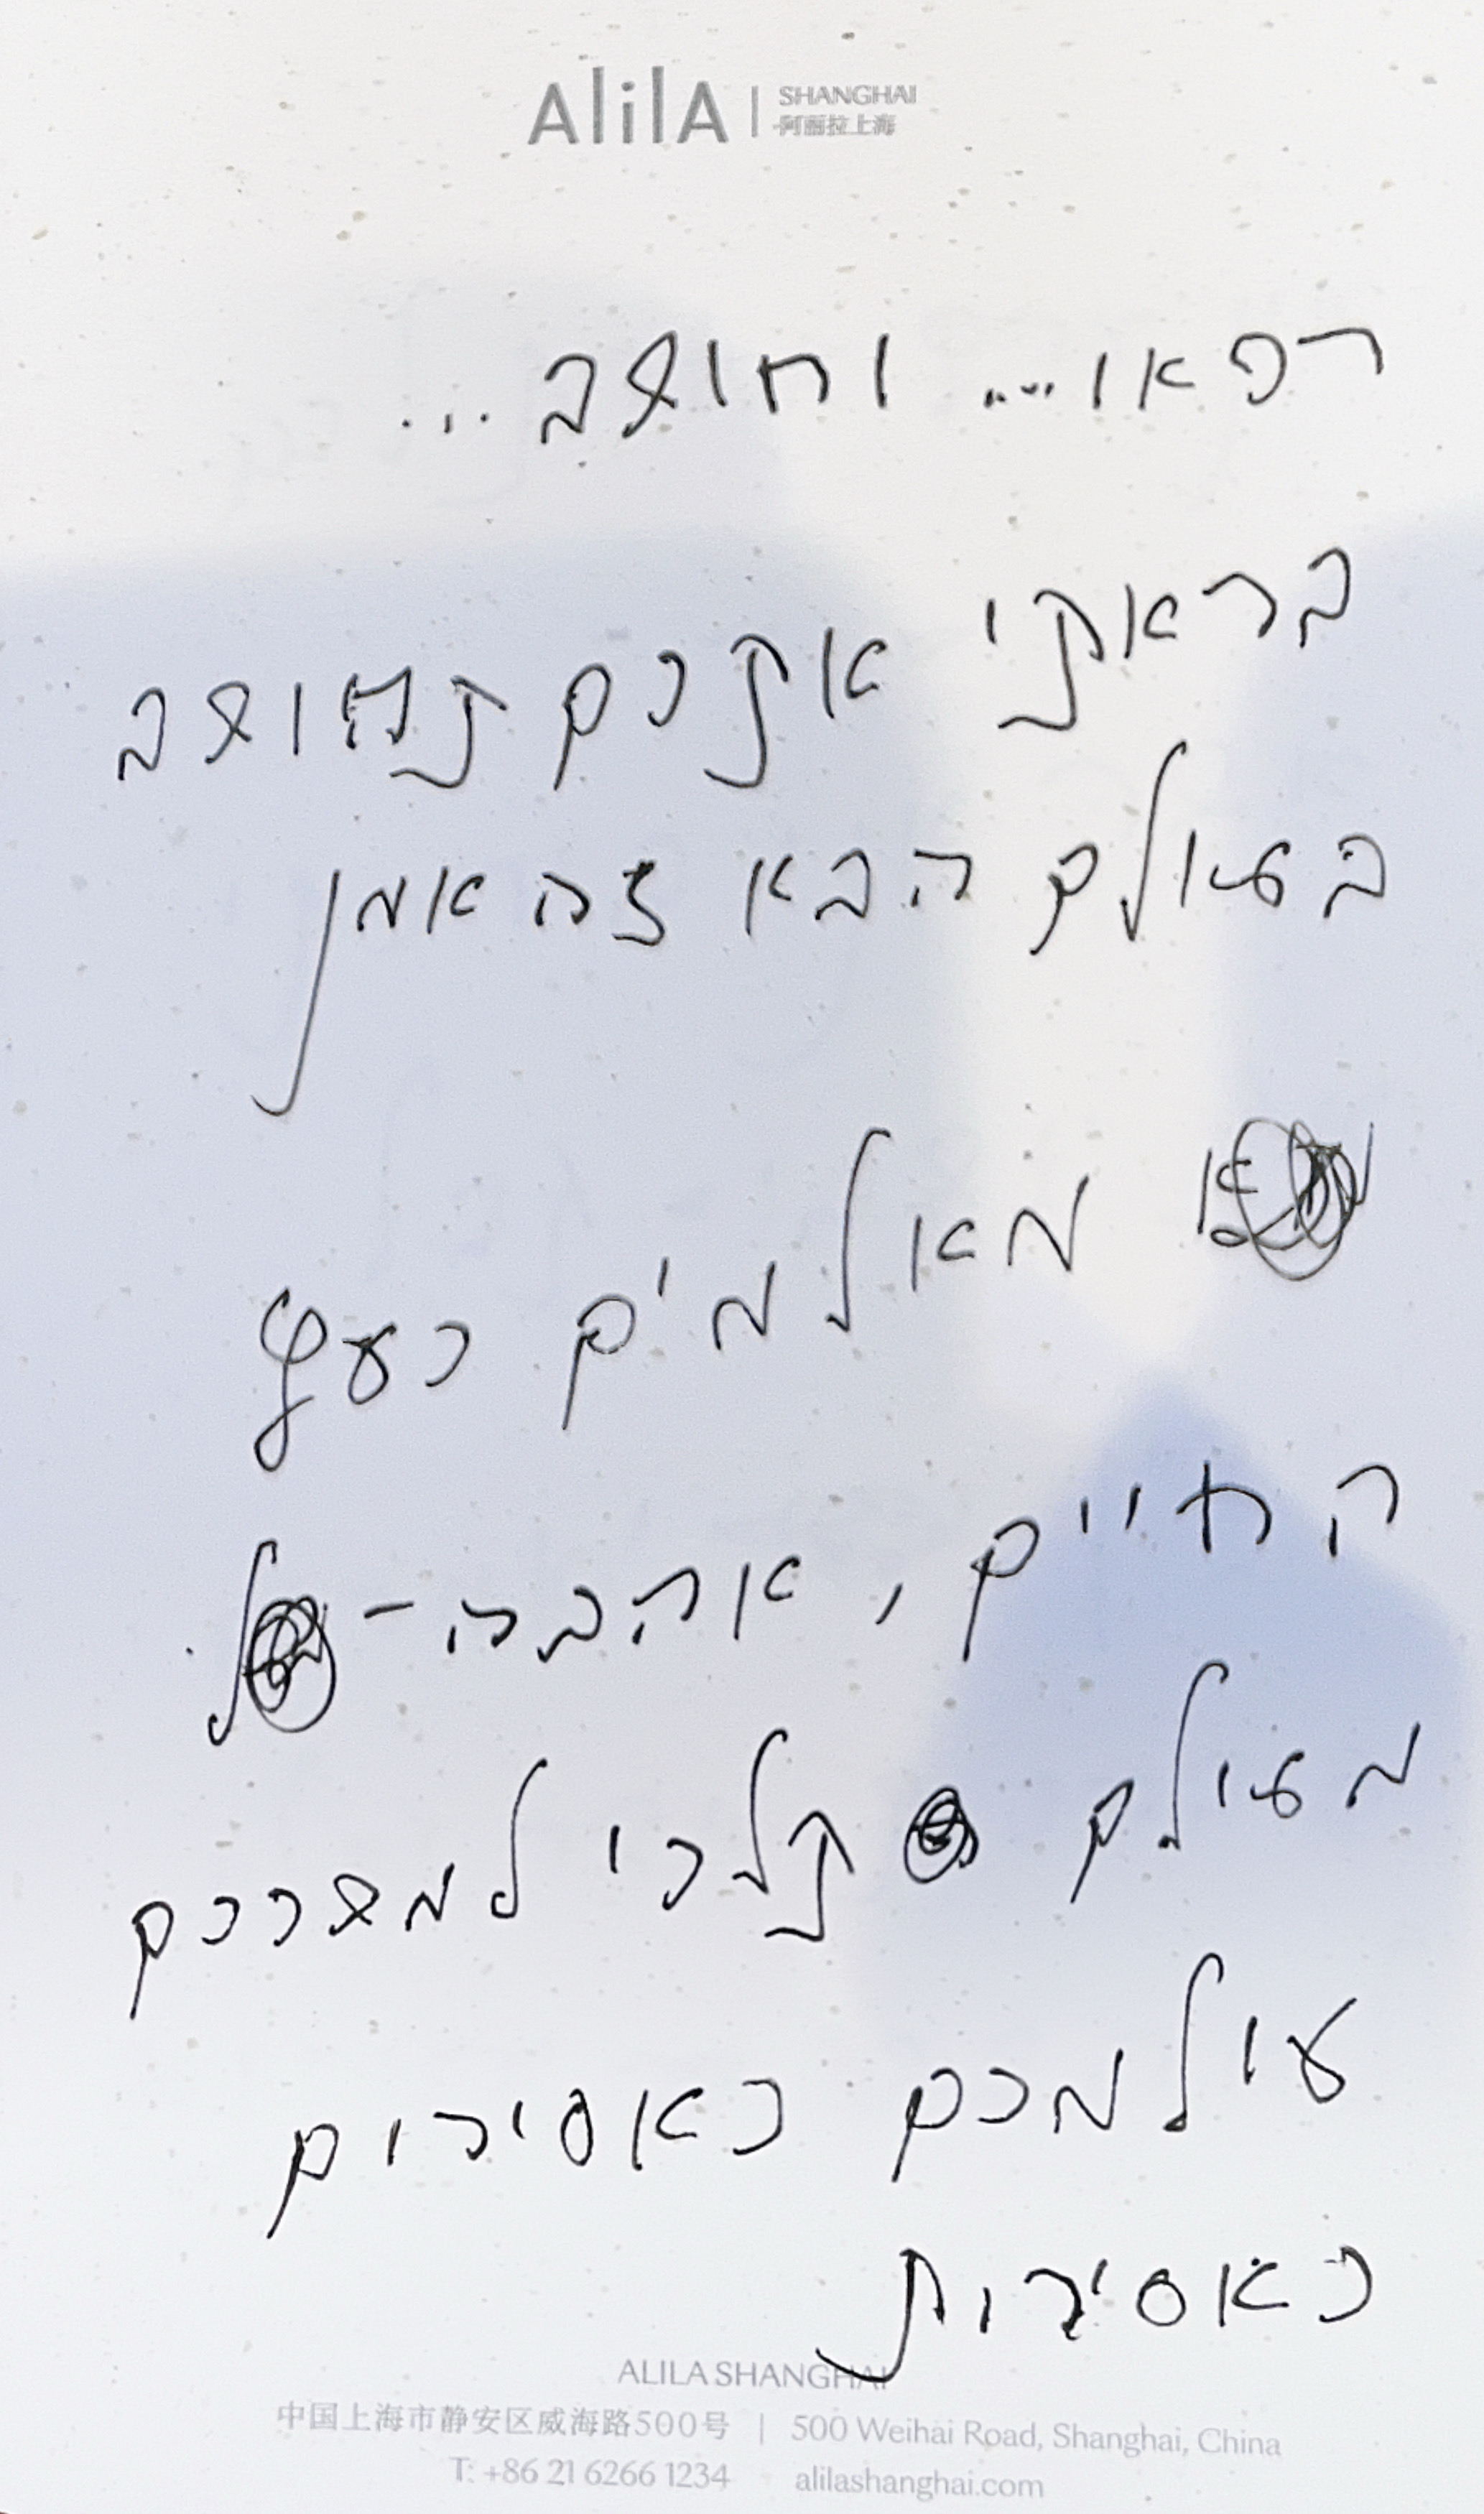 AlilA | SHANGHAI
阿丽拉上海
רפאו... וחושב...
בראתי אתכם תחושב
בעולם הבא זה אמן
מאלמים כעץ
החיים, אהבה - ל.
מעולם תלכי למשככם
עולמכם כאסירים
כאסירות
ALILA SHANGHAI
中国上海市静安区威海路500号 | 500 Weihai Road, Shanghai, China
T: +86 21 6266 1234 alilashanghai.com